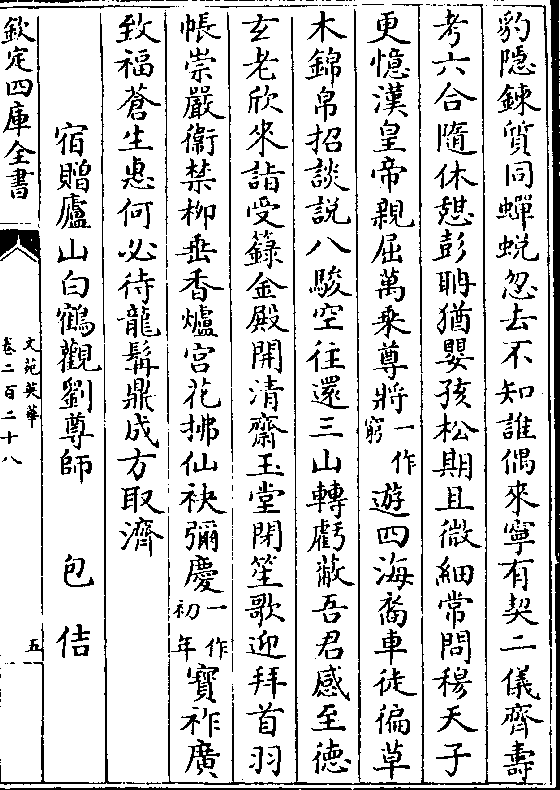 豹隱鍊質同蟬蛻忽去不知誰偶來寧有契二儀齊壽
考六合隨休憩彭聃猶嬰孩松期且微細常問穆天子
更憶漢皇帝親屈萬乗尊將一作窮遊四海裔車徒徧草
木錦帛招談説八駿空往還三山轉虧蔽吾君感至徳
玄老欣來詣受籙金殿開清齋玉堂閉笙歌迎拜首羽
帳崇嚴衞禁柳垂香爐宮花拂仙袂彌慶一作初年寳祚廣
致福蒼生惠何必待龍髯鼎成方取濟
宿贈廬山白鶴觀劉尊師　包佶
欽定四庫全書
文苑英華
卷二百二十八
五